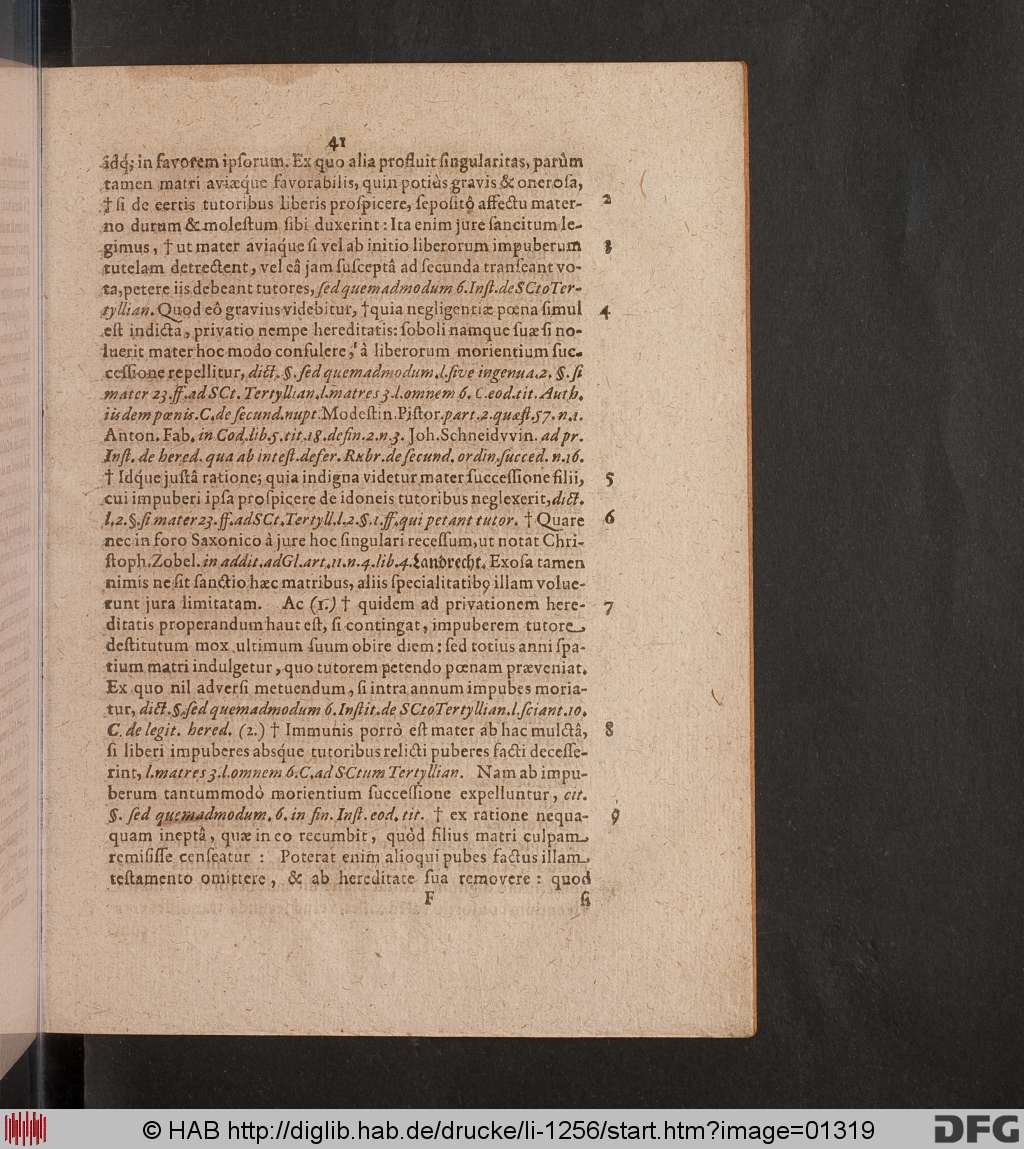 41
idq; in favorem ipsorum. Ex quo alia profluit singularitas, parùm
tamen matri aviæque favorabilis, quin potiùs gravis & onerosa,
† si de certis tutoribus liberis prospicere, sepositô affectu mater- 2
no durum & molestum sibi duxerint: Ita enim jure sancitum le-
gimus, † ut mater aviaque si vel ab initio liberorum impuberum 3
tutelam detrectent, vel eâ jam susceptâ ad secunda transeant vo-
ta, petere iis debeant tutores, sed quemadmodum 6. Inst. de SCto Ter-
tyllian. Quod eô gravius videbitur, † quia negligentiæ pœna simul 4
est indicta, privatio nempe hereditatis: soboli namque suæ si no-
luerit mater hoc modo consulere, à liberorum morientium suc-
cessione repellitur, dict. §. sed quemadmodum. l. sive ingenua. 2. §. si
mater 23. ff. ad SCt. Tertyllian. l. matres 3. l. omnem 6. C. eod. tit. Auth.
iisdem pœnis. C. de secund. nupt. Modestin. Pistor. part. 2. quæst. 57. n. 1.
Anton. Fab. in Cod. lib. 5. tit. 18. defin. 2. n. 3. Joh. Schneidvvin. ad pr.
Inst. de hered. qua ab intest. defer. Rubr. de secund. ordin. succed. n. 16.
† Idque justâ ratione; quia indigna videtur mater successione filii, 5
cui impuberi ipsa prospicere de idoneis tutoribus neglexerit, dict.
l. 2. §. si mater 23. ff. ad SCt. Tertyll. l. 2. §. 1. ff. qui petant tutor. † Quare 6
nec in foro Saxonico à jure hoc singulari recessum, ut notat Chri-
stoph. Zobel. in addit. ad Gl. art. 11. n. 4. lib. 4. Landrecht. Exosa tamen
nimis ne sit sanctio hæc matribus, aliis specialitatibꝰ illam volue-
runt jura limitatam. Ac (1.) † quidem ad privationem here- 7
ditatis properandum haut est, si contingat, impuberem tutore
destitutum mox ultimum suum obire diem: sed totius anni spa-
tium matri indulgetur, quo tutorem petendo pœnam præveniat.
Ex quo nil adversi metuendum, si intra annum impubes moria-
tur, dict. §. sed quemadmodum 6. Instit. de SCto Tertyllian. l. sciant. 10.
C. de legit. hered. (2.) † Immunis porrò est mater ab hac mulctâ, 8
si liberi impuberes absque tutoribus relicti puberes facti decesse-
rint, l. matres 3. l. omnem 6. C. ad SCtum Tertyllian. Nam ab impu-
berum tantummodò morientium successione expelluntur, cit.
§. sed quemadmodum. 6. in fin. Inst. eod. tit. † ex ratione nequa- 9
quam ineptâ, quæ in eo recumbit, quòd filius matri culpam
remisisse censeatur : Poterat enim alioqui pubes factus illam
testamento omittere, & ab hereditate sua removere: quod
F si
© HAB http://diglib.hab.de/drucke/li-1256/start.htm?image=01319
DFG